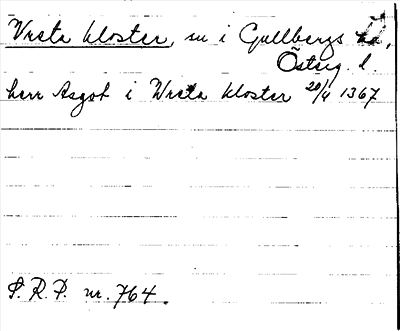 Vreta kloster, sn i Gullbergs hd,
Östug. l.
herr Asgot i Wreta kloster 20/4 1367
S.R.P. nr. 764.